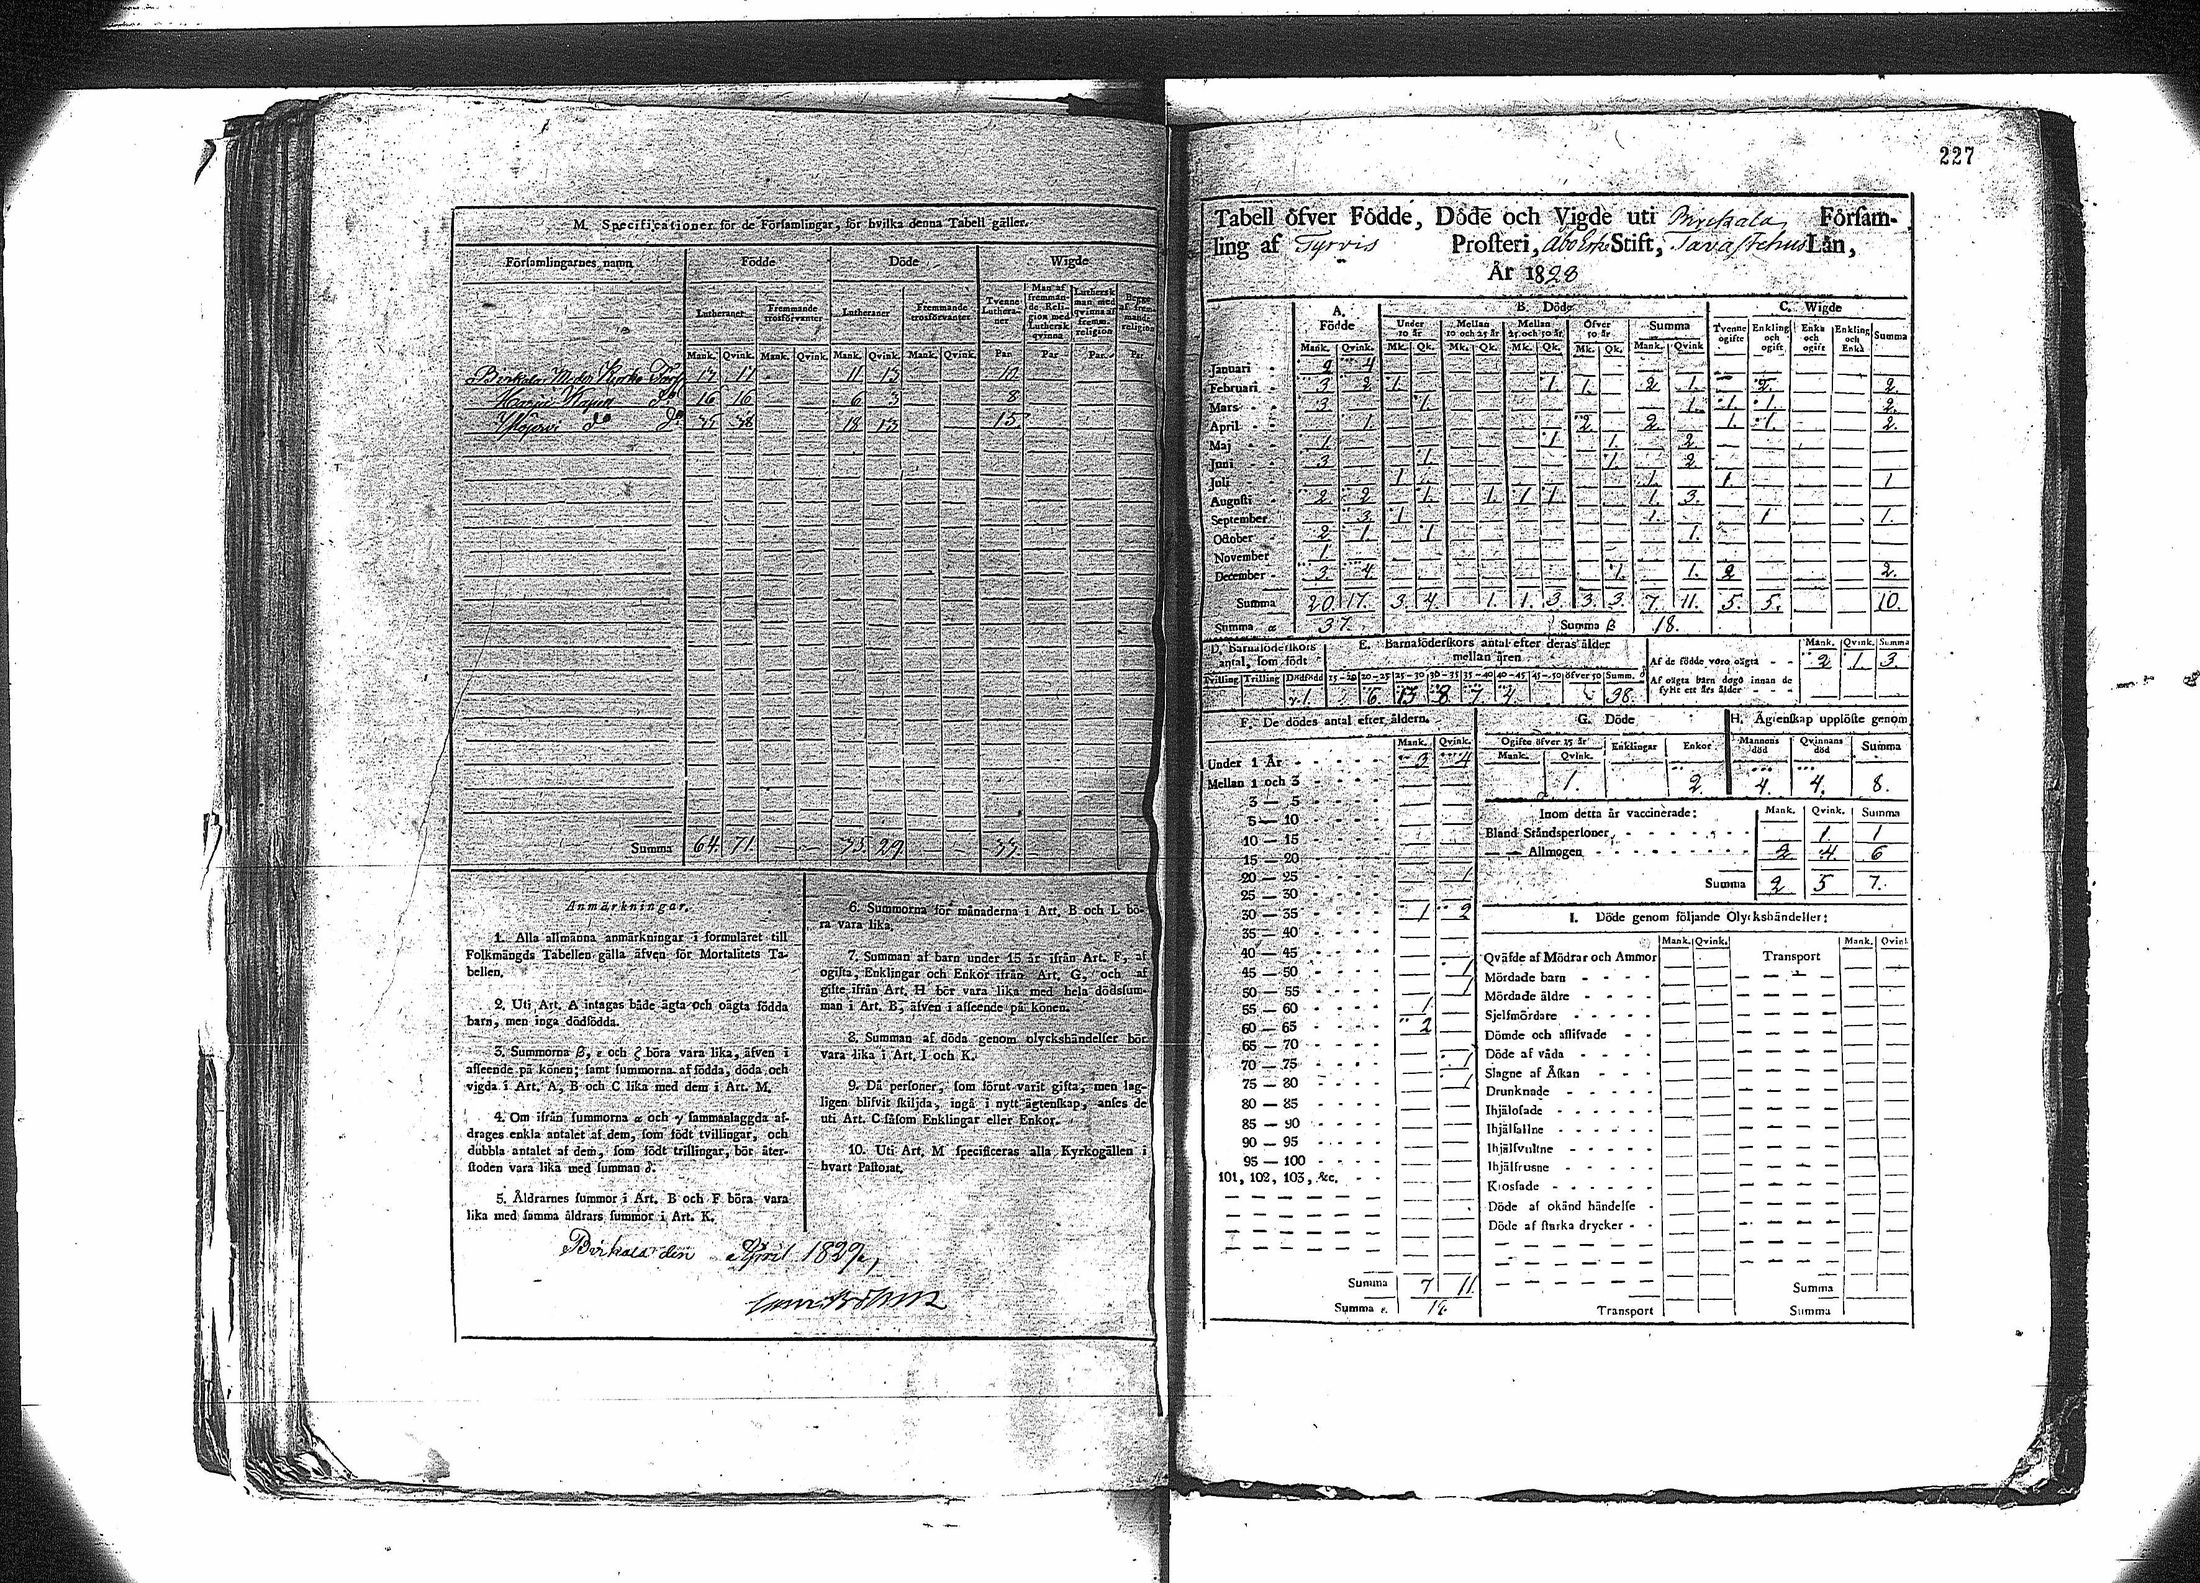 M. Specificationer för de Församlingar, för hvilka denna Tabell gäller.
Församlingarnes namn Födde Döde Wigde
Lutheraner Fremmande trosförvanter Lutheraner Fremmande trosförvanter Tvenne Lutheraner Man af fremmande Religion med Luthersk qvinna Luthersk man med qvinna af fremm. religion
Mank. Qvink. Mank. Qvink. Mank. Qvink. Mank. Qvink. Par Par Par. Par.
Birkala Moder Kyrko 13 17 11 13 10
16 16 6 3 8
35 38 18 13 15
Summa 64. 71 — — 35. 29 — — 33. —
Anmärkningar.
1. Alla allmänna anmärkningar i formuläret till
Folkmängds Tabellen gälla äfven för Mortalitets Ta-
bellen.
2. Uti Art. A intagas både ägta och oägta födda
barn, men inga dödfödda.
3. Summorna β, ε och ζ böra vara lika, äfven i
afseende på könen; samt summorna af födda, döda och
vigda i Art. A, B och C lika med dem i Art. M.
4. Om ifrån summorna α och γ sammanlaggda af-
drages enkla antalet af dem, som födt tvillingar, och
dubbla antalet af dem, som födt trillingar, bör åter-
stoden vara lika med summan δ.
5. Åldrarnes summor i Art. B och F böra vara
lika med samma åldrars summor i Art. K.
6. Summorna för månaderna i Art. B och L bö-
ra vara lika.
7. Summan af barn under 15 år ifrån Art. F, af
ogifta, Enklingar och Enkor ifrån Art. G, och af
gifte ifrån Art. H bör vara lika med hela dödssum-
man i Art. B, äfven i afseende på könen.
8. Summan af döda genom olyckshändelser bör
vara lika i Art. I och K.
9. Då personer, som förut varit gifta, men lag-
ligen blifvit skiljda, ingå i nytt ägtenskap, anses de
uti Art. C såsom Enklingar eller Enkor.
10. Uti Art. M specificeras alla Kyrkogällen i
hvart Pastorat.
Birkala den April 1829,
227
Tabell öfver Födde, Döde och Vigde uti Birkala Försam-
ling af Tyrvis Prosteri, Åbo Erke Stift, Tavastehus Län,
År 1828
A. Födde B. Döde C. Wigde
Under 10 år Mellan 10 och 25 år Mellan 25 och 50 år Öfver 50 år Summa Tvenne ogifte Enkling och ogift Enka och ogift Enkling och Enka Summa
Mank. Qvink. Mk. Qk. Mk. Qk. Mk. Qk. Mk. Qk. Mank. Qvink
Januari 2 4
Februari 3 2 1 1 1. 2 1. 2. 2.
Mars 3 1. 1. 1. 1. 2.
April 1. 2 2 1. 1. 2.
Maj 1 1 1. 2
Juni 3 1. 1. 2
Juli 1 1. 1 1
Augusti 2 2 1. 1 1 1 1. 3.
September 3 1 1. 1 1.
October 2 1 1 1.
November 1.
December 3. 4 1. 1. 2 2.
Summa 20. 17. 3. 4. 1. 1. 3 3. 3. 7. 11. 5. 5. 10.
Summa α 37. Summa β 18.
D. Barnaföderskors antal, som födt
Tvilling Trilling Dödfödd
γ 1.
E. Barnaföderskors antal efter deras ålder mellan åren
15—20 20—25 25—30 30—35 35—40 40—45 45—50 öfver 50 Summ. δ
6. 13 8 7 4. 38.
Mank. Qvink. Summa
Af de födde voro oägta 2 1. 3.
Af oägta barn dogo innan de
fyllt ett års ålder
F. De dödes antal efter åldern.
Mank. Qvink.
Under 1 År 3 4
Mellan 1 och 3
3 — 5
5 — 10
10 — 15
15 — 20
20 — 25 1
25 — 30
30 — 35 1 2
35 — 40
40 — 45
45 — 50 1
50 — 55 1
55 — 60 1.
60 — 65 2
65 — 70
70 — 75 1
75 — 80 1
80 — 85
85 — 90
90 — 95
95 — 100
101, 102, 103, &c.
Summa 7 11
Summa ε. 18.
G. Döde
Ogifte öfver 15 år Enklingar Enkor
Mank. Qvink.
1. 2.
H. Ägtenskap upplöste genom
Mannens död Qvinnans död Summa
4. 4. 8.
Inom detta år vaccinerade: Mank. Qvink. Summa
Bland Ståndspersoner 1. 1
— — Allmogen 2 4. 6
Summa 2 5 7.
I. Döde genom följande Olyckshändelser:
Mank. Qvink. Mank. Qvink
Qväfde af Mödrar och Ammor Transport
Mördade barn
Mördade äldre
Sjelfmördare
Dömde och aflifvade
Döde af våda
Slagne af Åskan
Drunknade
Ihjälosade
Ihjälfallne
Ihjälsvultne
Ihjälfrusne
Krossade
Döde af okänd händelse
Döde af starka drycker
Summa
Transport Summa